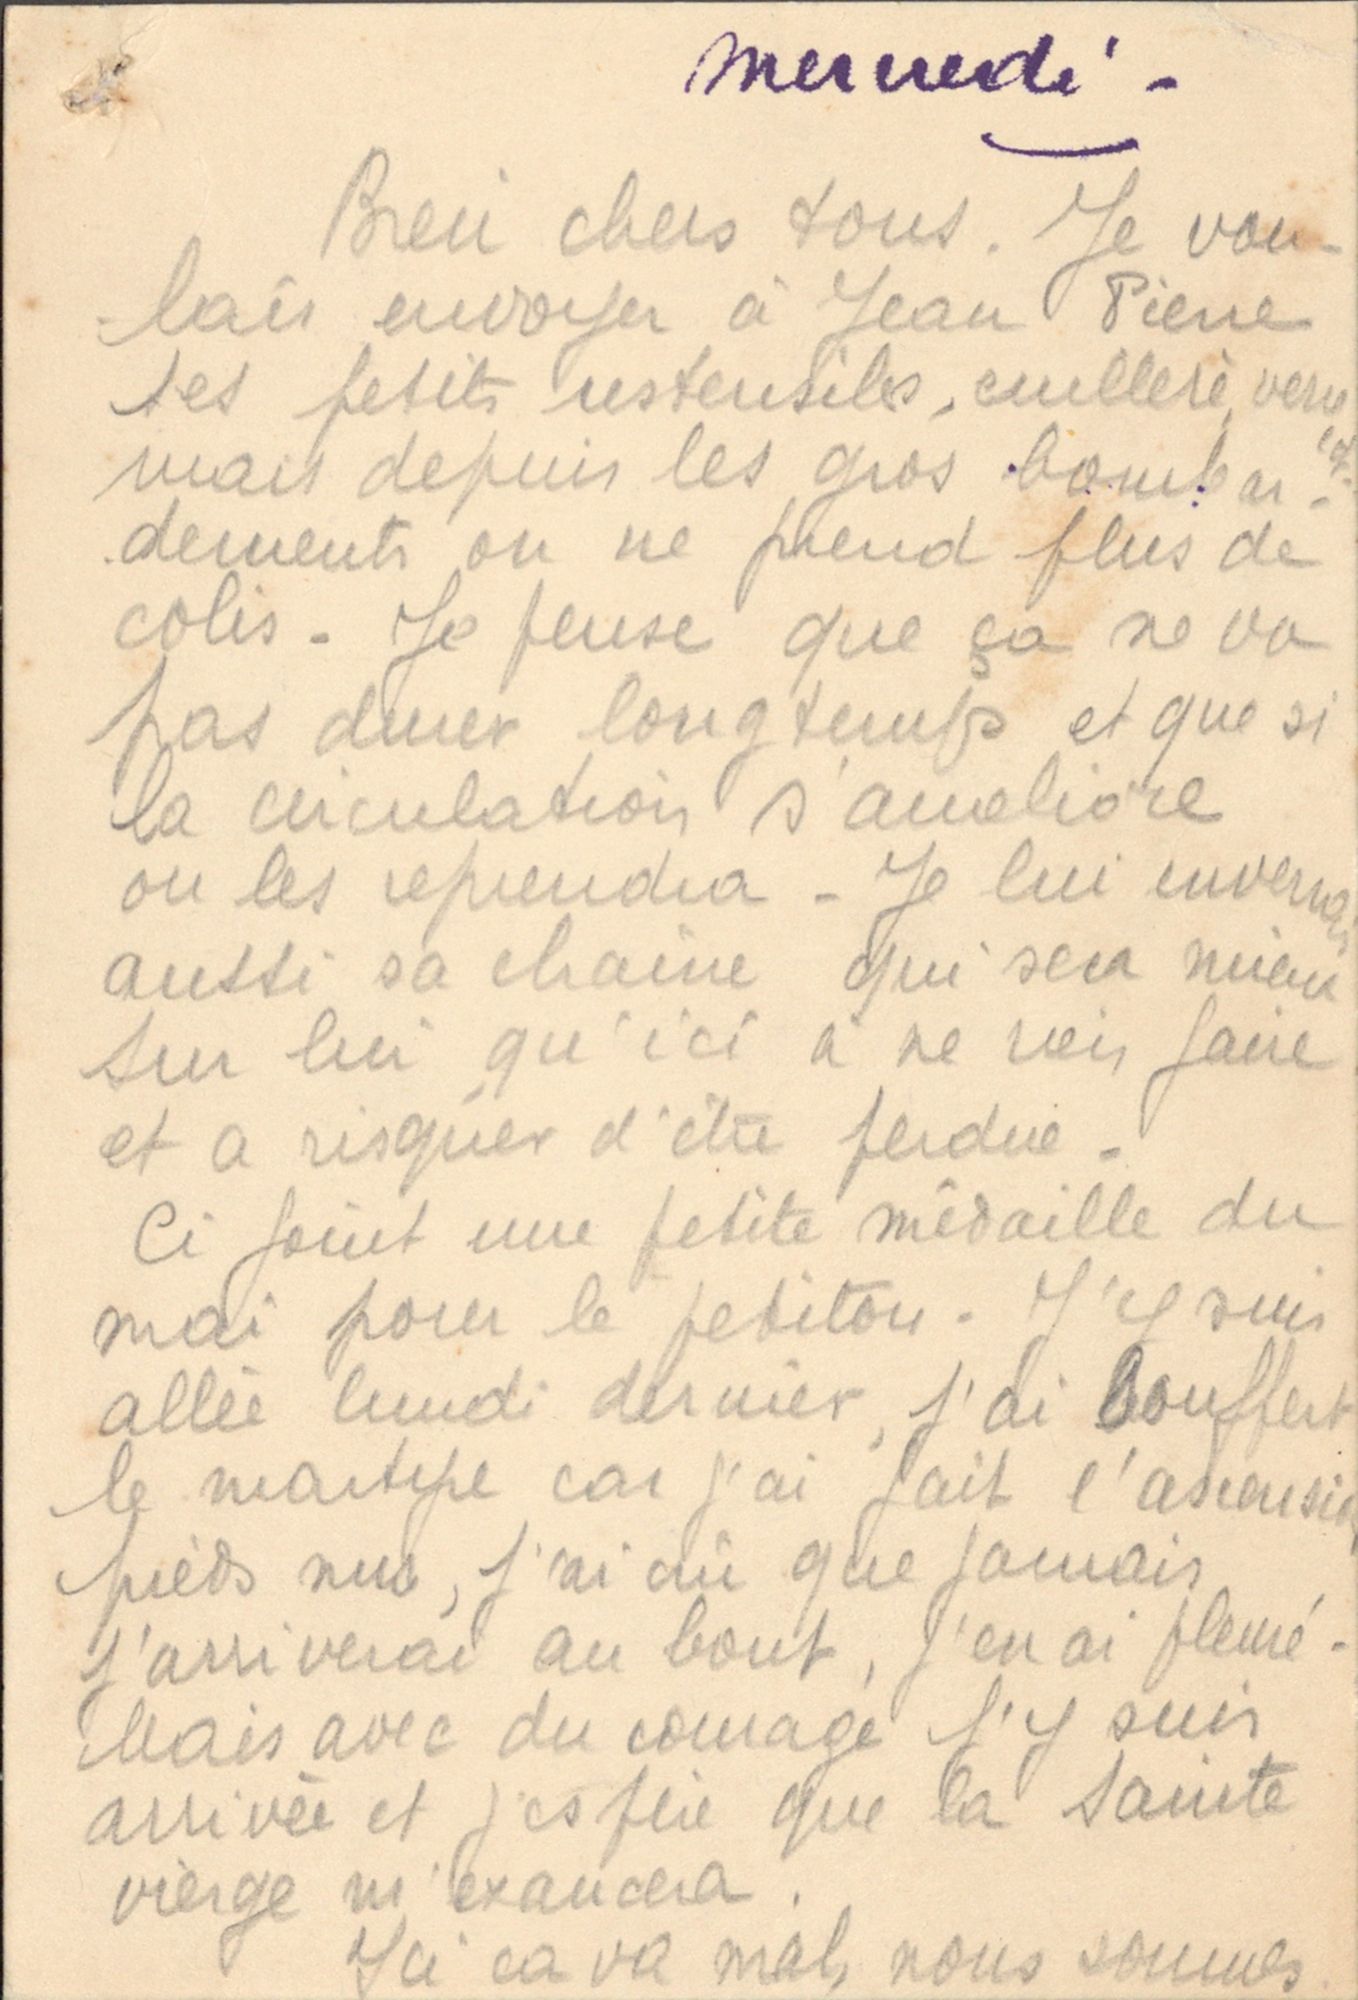 mercredi -
Bien chers tous. Je vou-
lais envoyer à Jean Pierre
ses petits ustensiles, cuillere, verre etc.
mais depuis les gros bombar-
dements on ne prend plus de
colis - Je pense que ça ne va
pas durer longtemps et que si
la circulation s'améliore
on les reprendra - Je lui enverrai
aussi sa chaine qui sera mieux
sur lui qu'ici à ne rien faire
et a risquer d'être perdue -
Ci joint une petite médaille du
mai pour le petiton - J'y suis
allée lundi dernier, j'ai souffert
le martyre car j'ai fait l'ascension
pieds nus, j'ai cru que jamais
j'arriverai au bout, j'en ai pleuré -
Mais avec du courage j'y suis
arrivée et j'espère que la Sainte
vierge m'exaucera.
Ici ca va mal, nous sommes